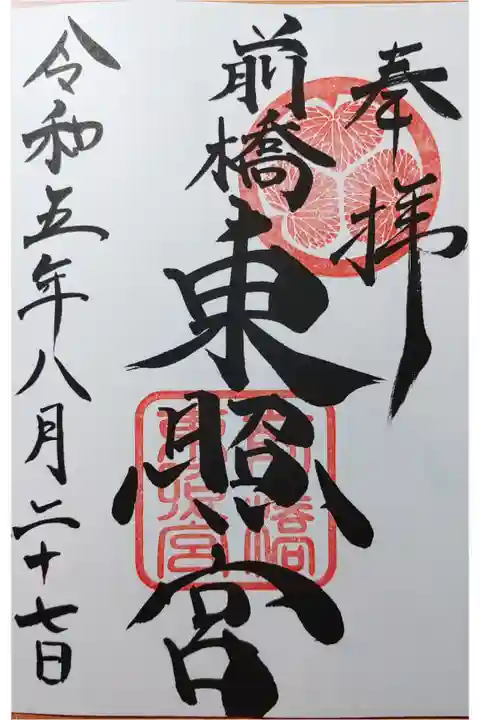 奉拝
前橋
東照宮
前橋
東照宮
令和五年八月二十七日